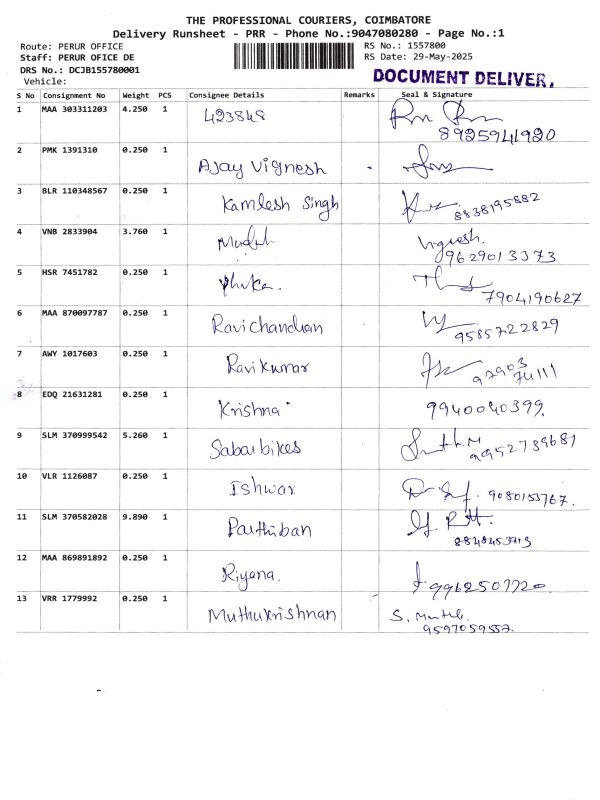 THE PROFESSIONAL COURIERS, COIMBATORE
Delivery Runsheet - PRR - Phone No.:9047080280 - Page No.:1
Route: PERUR OFFICE
RS No.: 1557800
Staff: PERUR OFICE DE
RS Date: 29-May-2025
DRS No.: DCJB155780001
DOCUMENT DELIVER.
Vehicle:
S No Consignment No Weight PCS Consignee Details Remarks Seal & Signature
1 MAA 303311203 4.250 1 423848
8925941920
2 PMK 1391310 0.250 1 Ajay Vignesh
3 BLR 110348567 0.250 1 Kamlesh Singh
8838195882
4 VNB 2833904 3.760 1 Vignesh.
9629013373
5 HSR 7451782 0.250 1
7904190627
6 MAA 870097787 0.250 1 Ravichandian
9585722829
7 AWY 1017603 0.250 1 Ravikumar
97903
74111
8 EDQ 21631281 0.250 1 Krishna 9940040399.
9 SLM 370999542 5.260 1 Sabari bikes
9952739681
10 VLR 1126087 0.250 1 Ishwar 9080153767.
11 SLM 370582028 9.890 1 Parthiban
12 MAA 869891892 0.250 1 Riyana.
13 VRR 1779992 0.250 1 Muthukrishnan S. Muthu.
9597059557.